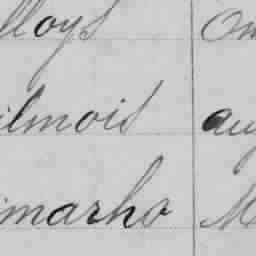 lloys On
ilmois aug
marho M